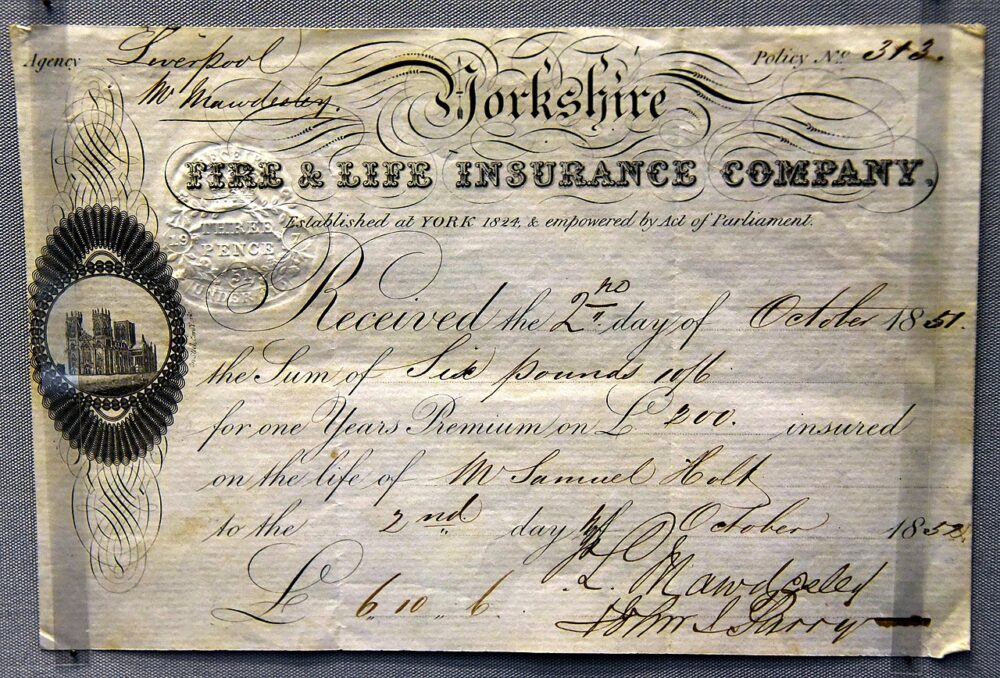 Agency Liverpool Policy No. 343.
Mr Mawdesley.
Yorkshire
FIRE & LIFE INSURANCE COMPANY,
Established at YORK 1824, & empowered by Act of Parliament.
THREE
PENCE
UNDER
Received the 2nd day of October 1851.
the Sum of Six pounds 10/6
for one Years Premium on £ 200. insured
on the life of Mr Samuel Holt
to the 2nd day of October 1852.
£ 6,, 10,, 6
Mawdesley
John